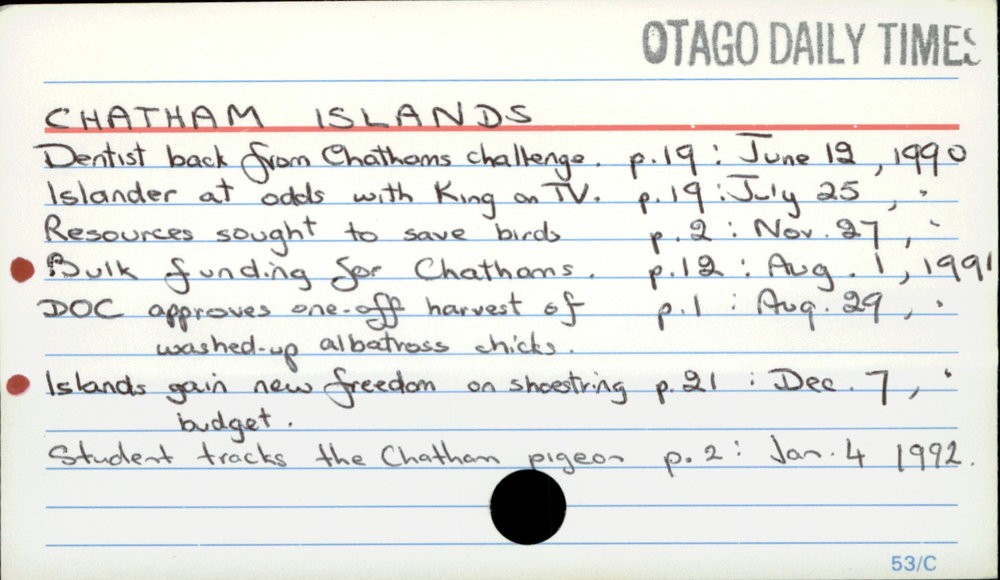 OTAGO DAILY TIMES
CHATHAM ISLANDS
Dentist back from Chathams challenge. p.19 : June 12, 1990
Islander at odds with King on TV. p.19 : July 25, "
Resources sought to save birds p.2 : Nov. 27, "
Bulk funding for Chathams. p.12 : Aug. 1, 1991
DOC approves one-off harvest of p.1 : Aug. 29, "
washed-up albatross chicks.
Islands gain new freedom on shoestring p.21 : Dec. 7, "
budget.
Student tracks the Chatham pigeon p. 2 : Jan. 4 1992.
53/C